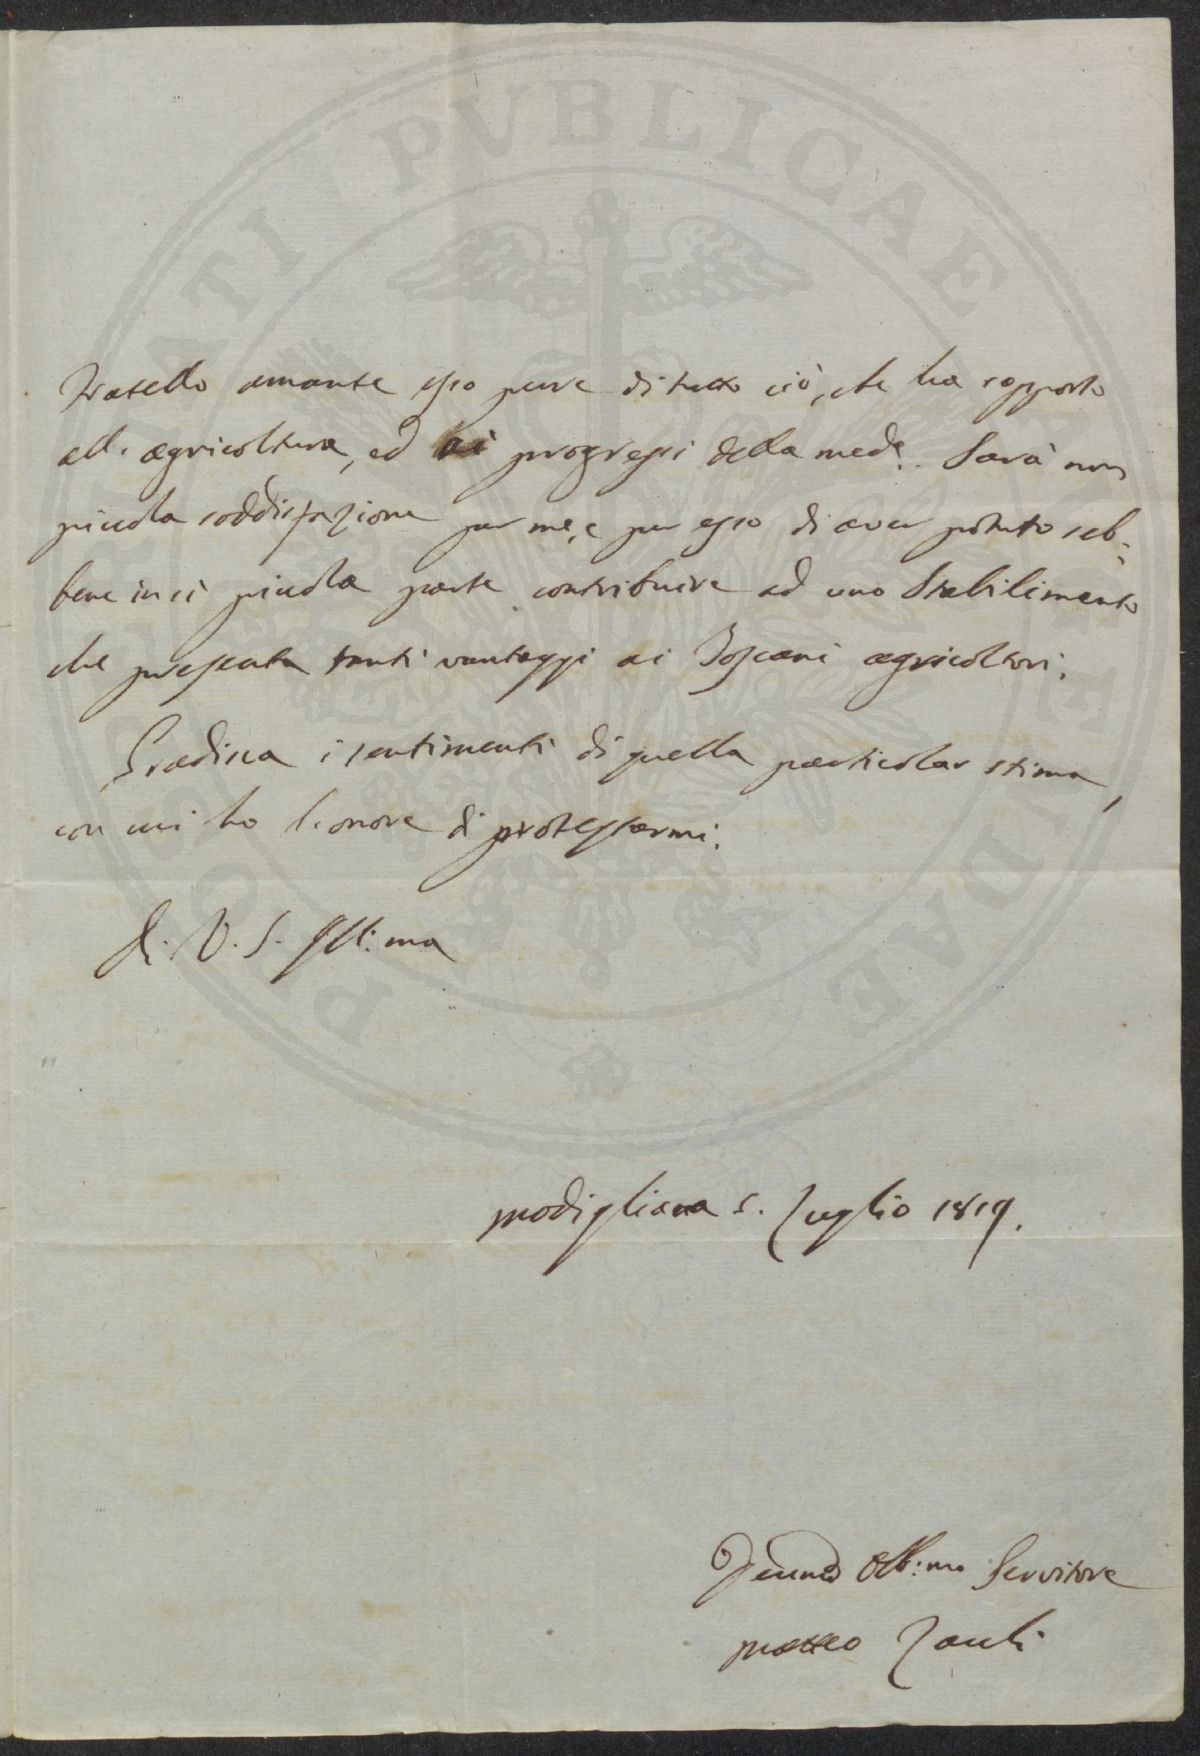 Fratello amante esso pure di tutto ciò, che ha rapporto
all'agricoltura, ed ai progressi della med.ª. Sarà non
piccola soddisfazione per me, e per esso di aver potuto seb-
bene in sì piccola parte contribuire ad uno Stabilimento
che presenta tanti vantaggi ai Toscani agricoltori.
Gradisca i sentimenti di quella particolar stima,
con cui ho l'onore di protestarmi.
di V. S. Ill:ma
Modigliana 5. Luglio 1819.
Obb:mo Servitore
Matteo Zauli
PUBLICAE